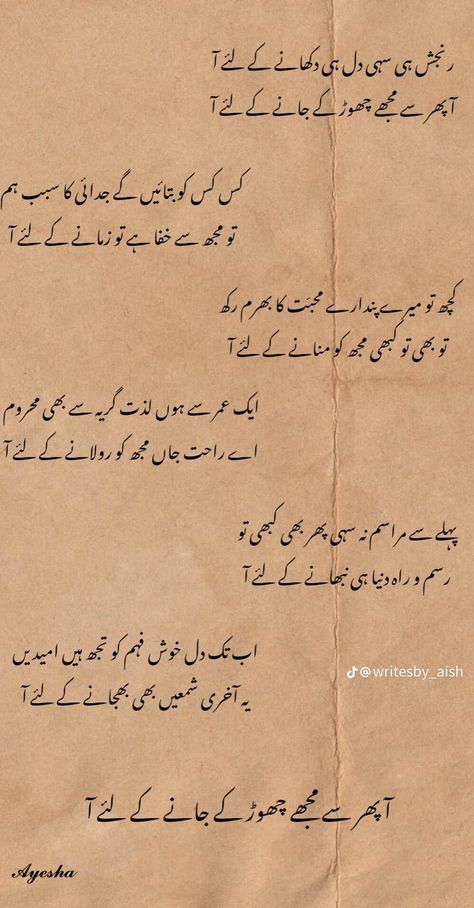 رنجش ہی سہی دل ہی دکھانے کے لئے آ
آ پھر سے مجھے چھوڑ کے جانے کے لئے آ
کس کس کو بتائیں گے جدائی کا سبب ہم
تو مجھ سے خفا ہے تو زمانے کے لئے آ
کچھ تو میرے پندارے محبّت کا بھرم رکھ
تو بھی تو کبھی مجھ کو منانے کے لئے آ
ایک عمر سے ہوں لذت گریہ سے بھی محروم
اے راحت جاں مجھ کو رولانے کے لئے آ
پہلے سے مراسم نہ سہی پھر بھی کبھی تو
رسم و راہ دنیا ہی نبھانے کے لئے آ
اب تک دل خوش فہم کو تجھ ہیں امیدیں
یہ آخری شمعیں بھی بھجانے کے لئے آ
@writesby_aish
آ پھر سے مجھے چھوڑ کے جانے کے لئے آ
Ayesha